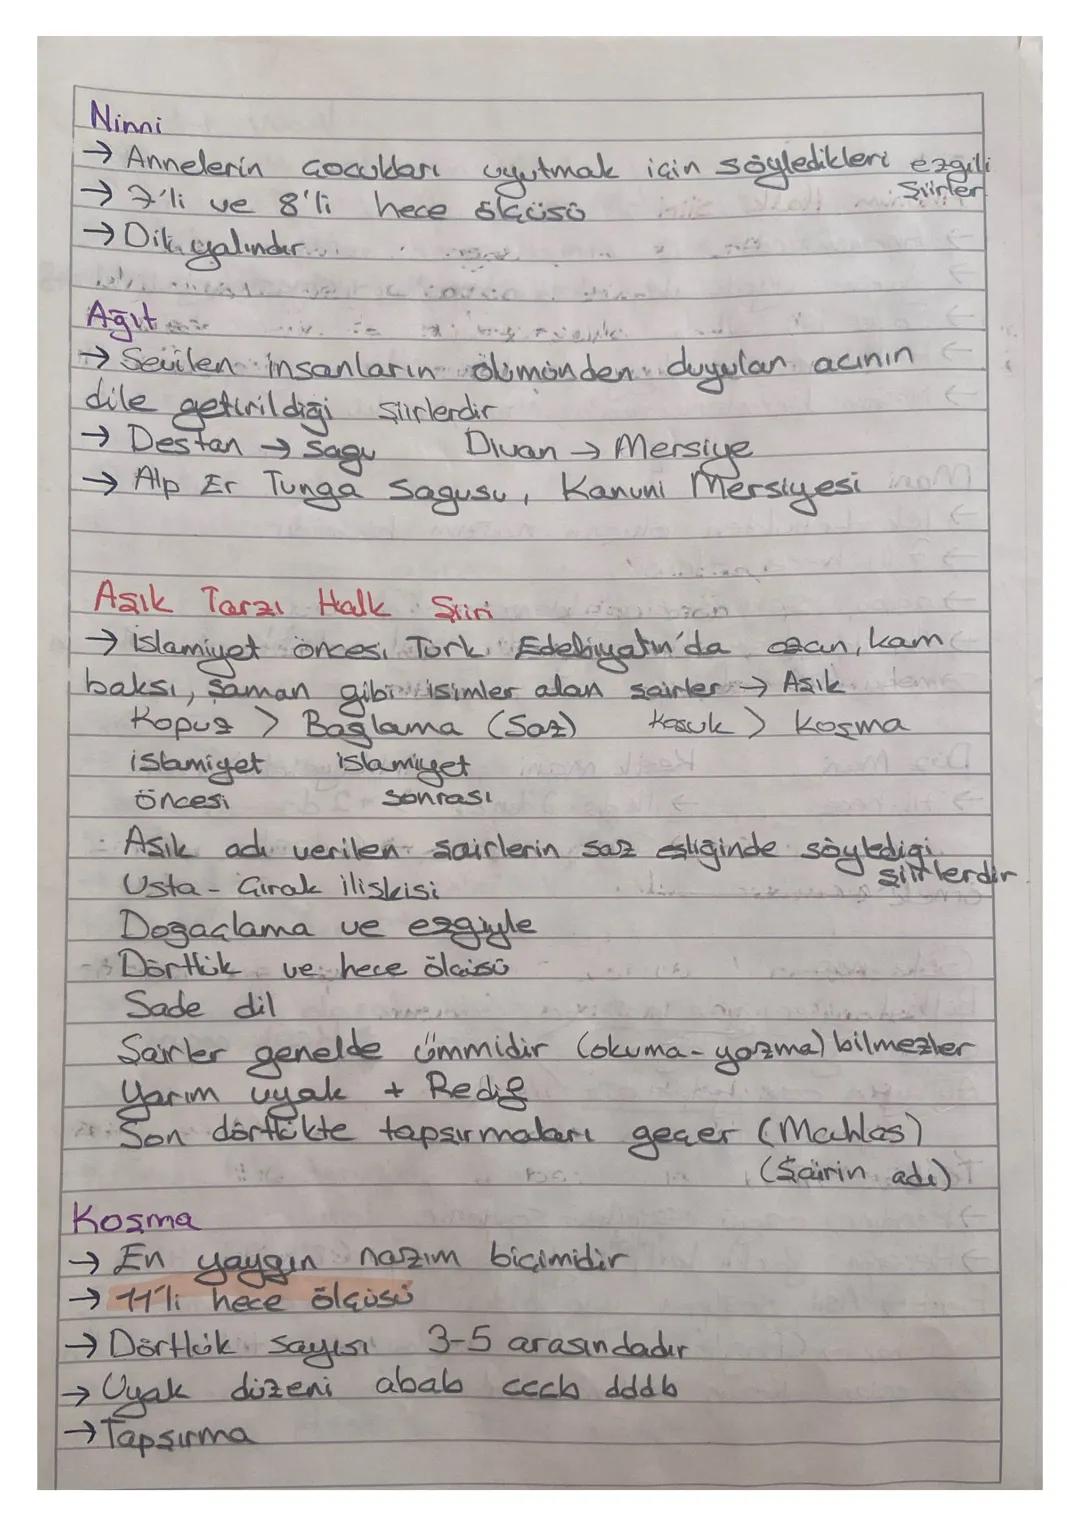 Ninni
→ Annelerin çocukları uyutmak için söyledikleri ezgili
şiirler
→ 7'li ve 8'li hece ölçüsü
→ Dil yalındır
Ağıt
→ Sevilen insanların ölümünden duyulan acının
dile getirildiği şiirlerdir
→ Destan → Sagu Divan → Mersiye
→ Alp Er Tunga Sagusu, Kanuni Mersiyesi
Aşık Tarzı Halk Şiiri
→ İslamiyet öncesi Türk Edebiyatın'da ozan, kam
baksı, şaman gibi isimler alan şairler → Aşık
Kopuz > Bağlama (Saz) Koşuk > Koşma
İslamiyet İslamiyet
öncesi sonrası
Aşık adı verilen şairlerin saz eşliğinde söylediği
şiirlerdir
Usta - Çırak ilişkisi
Doğaçlama ve ezgiyle
Dörtlük ve hece ölçüsü
Sade dil
Şairler genelde ümmidir (okuma-yazma) bilmezler
Yarım uyak + Redif
Son dörtlükte tapşırmaları geçer (Mahlas)
(Şairin adı)
Koşma
→ En yaygın nazım biçimidir
→ 11'li hece ölçüsü
→ Dörtlük sayısı 3-5 arasındadır
→ Uyak düzeni abab cccb dddb
→ Tapşırma